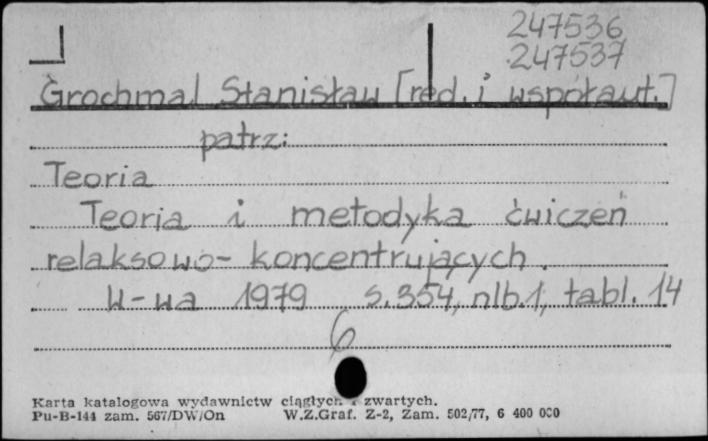 247536
247537
Grochmal Stanisław [red. i współaut.]
patrz:
Teoria
Teoria i metodyka ćwiczeń
relaksowo-koncentrujących.
W-wa 1979 s.354, nlb.1, tabl. 14
6
Karta katalogowa wydawnictw ciągłych i zwartych.
Pu-B-144 zam. 567/DW/On W.Z.Graf. Z-2, Zam. 502/77, 6 400 000